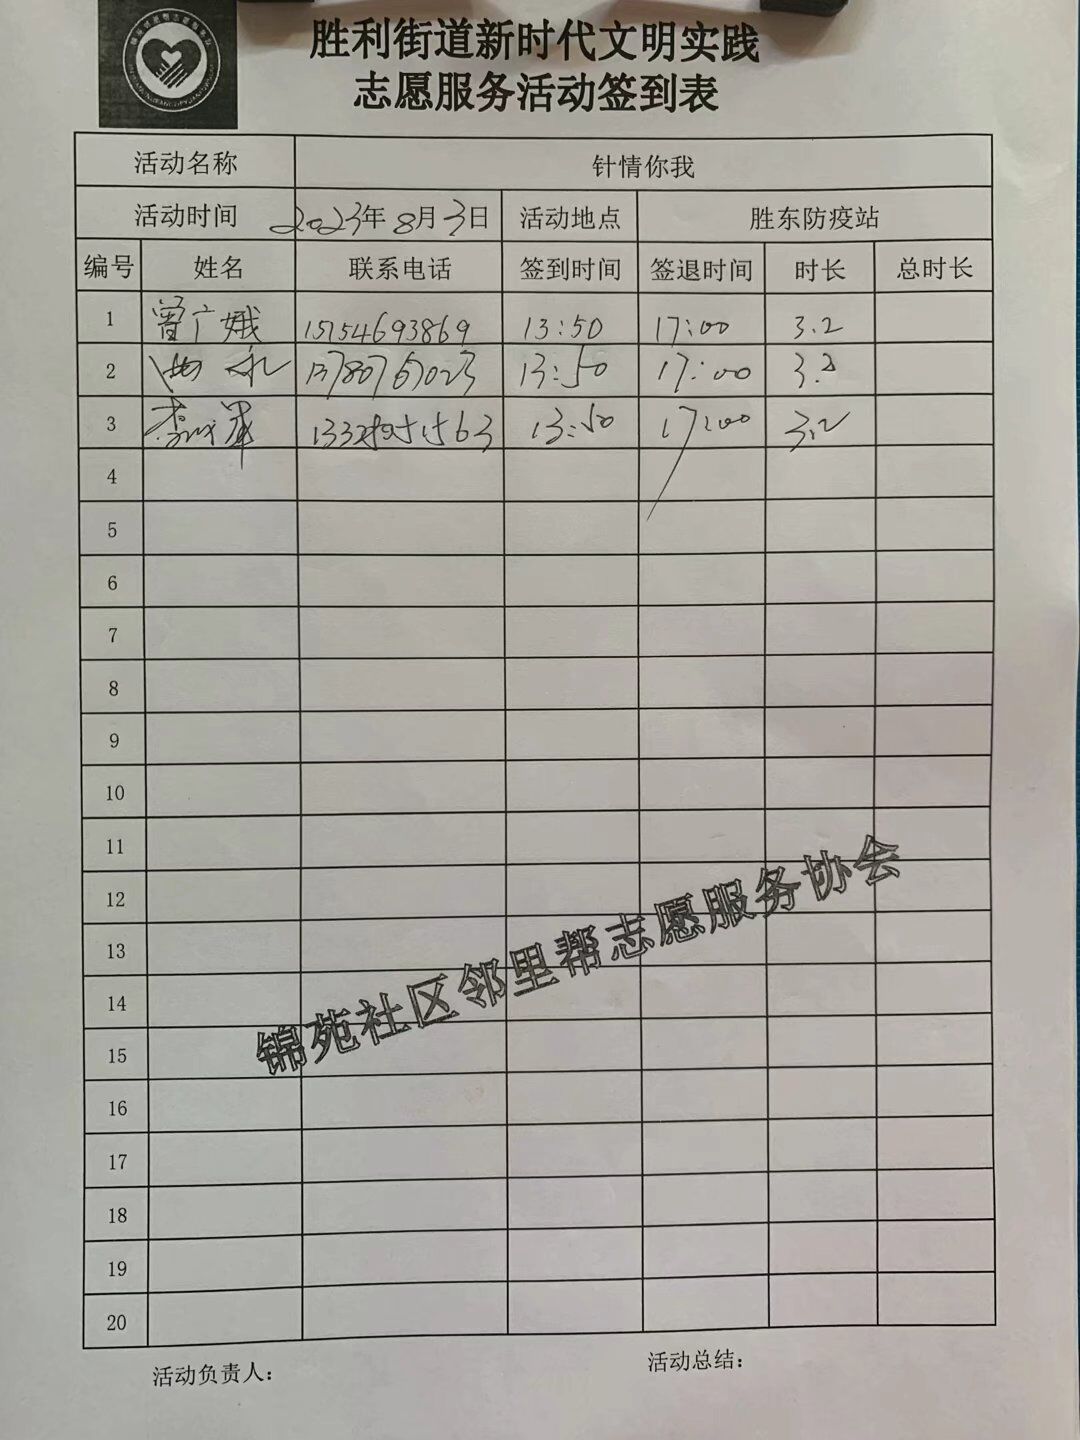 胜利街道新时代文明实践
志愿服务活动签到表
活动名称 针情你我
活动时间 2023年8月3日 活动地点 胜东防疫站
编号 姓名 联系电话 签到时间 签退时间 时长 总时长
1 曾广娥 15154693869 13:50 17:00 3.2
2 13780767023 13:50 17:00 3.2
3 13:50 17:00 3.2
4
5
6
7
8
9
10
11
12
13
14
15
16
17
18
19
20
锦苑社区邻里帮志愿服务协会
活动负责人: 活动总结: